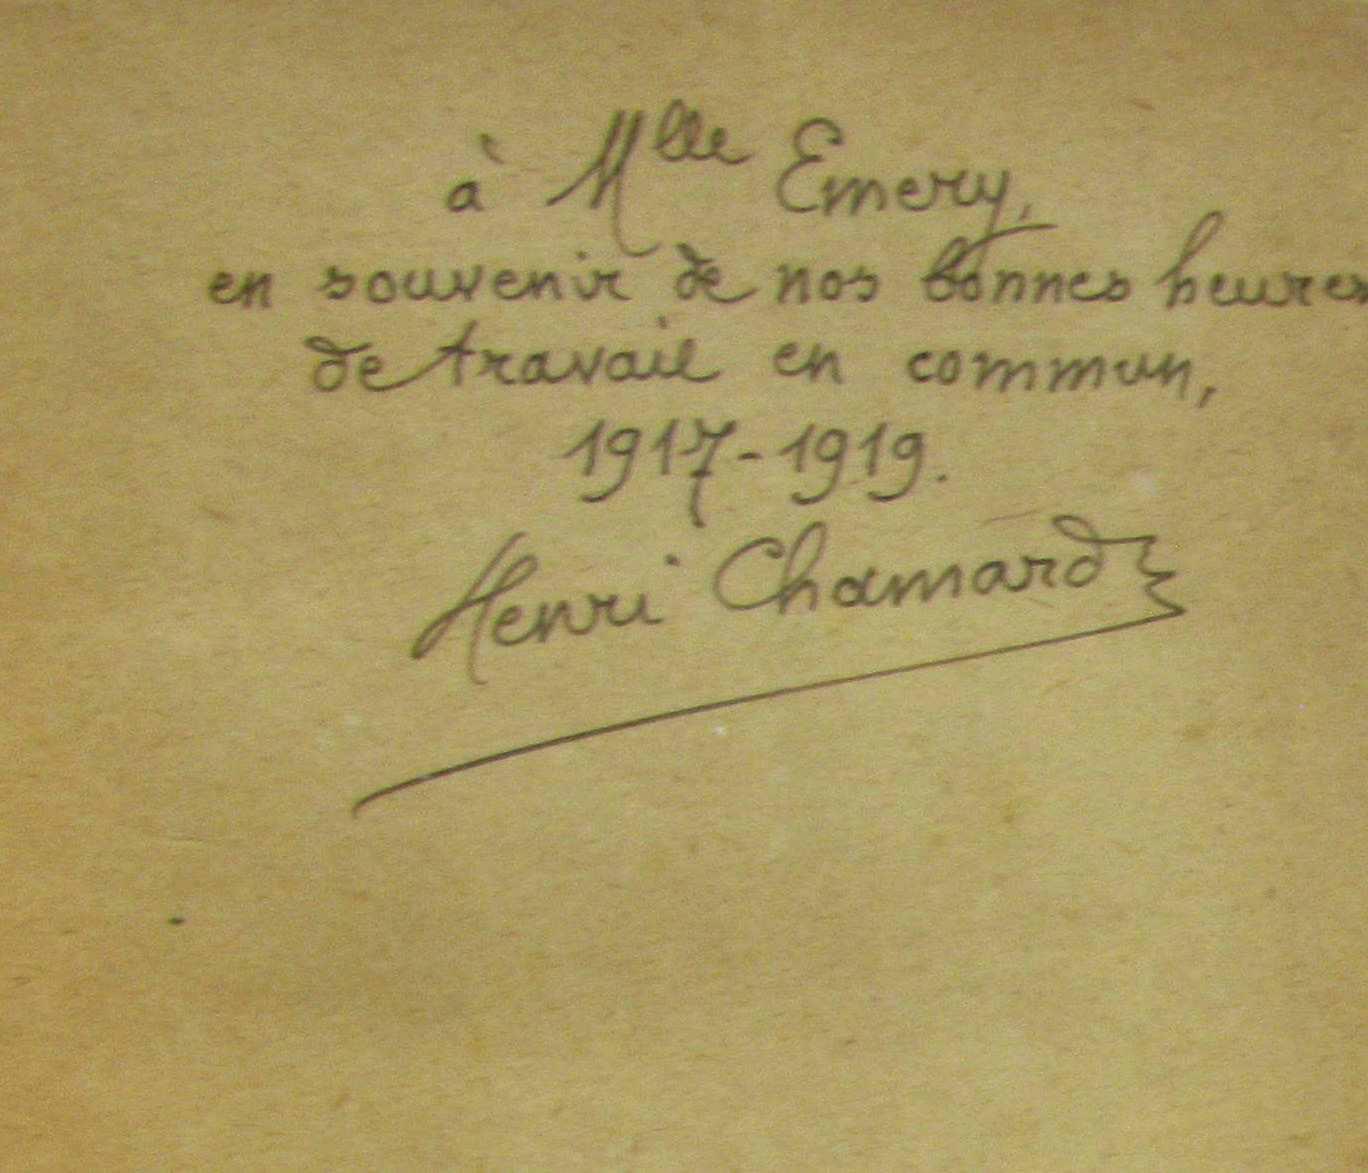 à Mlle Emery,
en souvenir de nos bonnes heures
de travail en commun,
1917-1919.
Henri Chamard